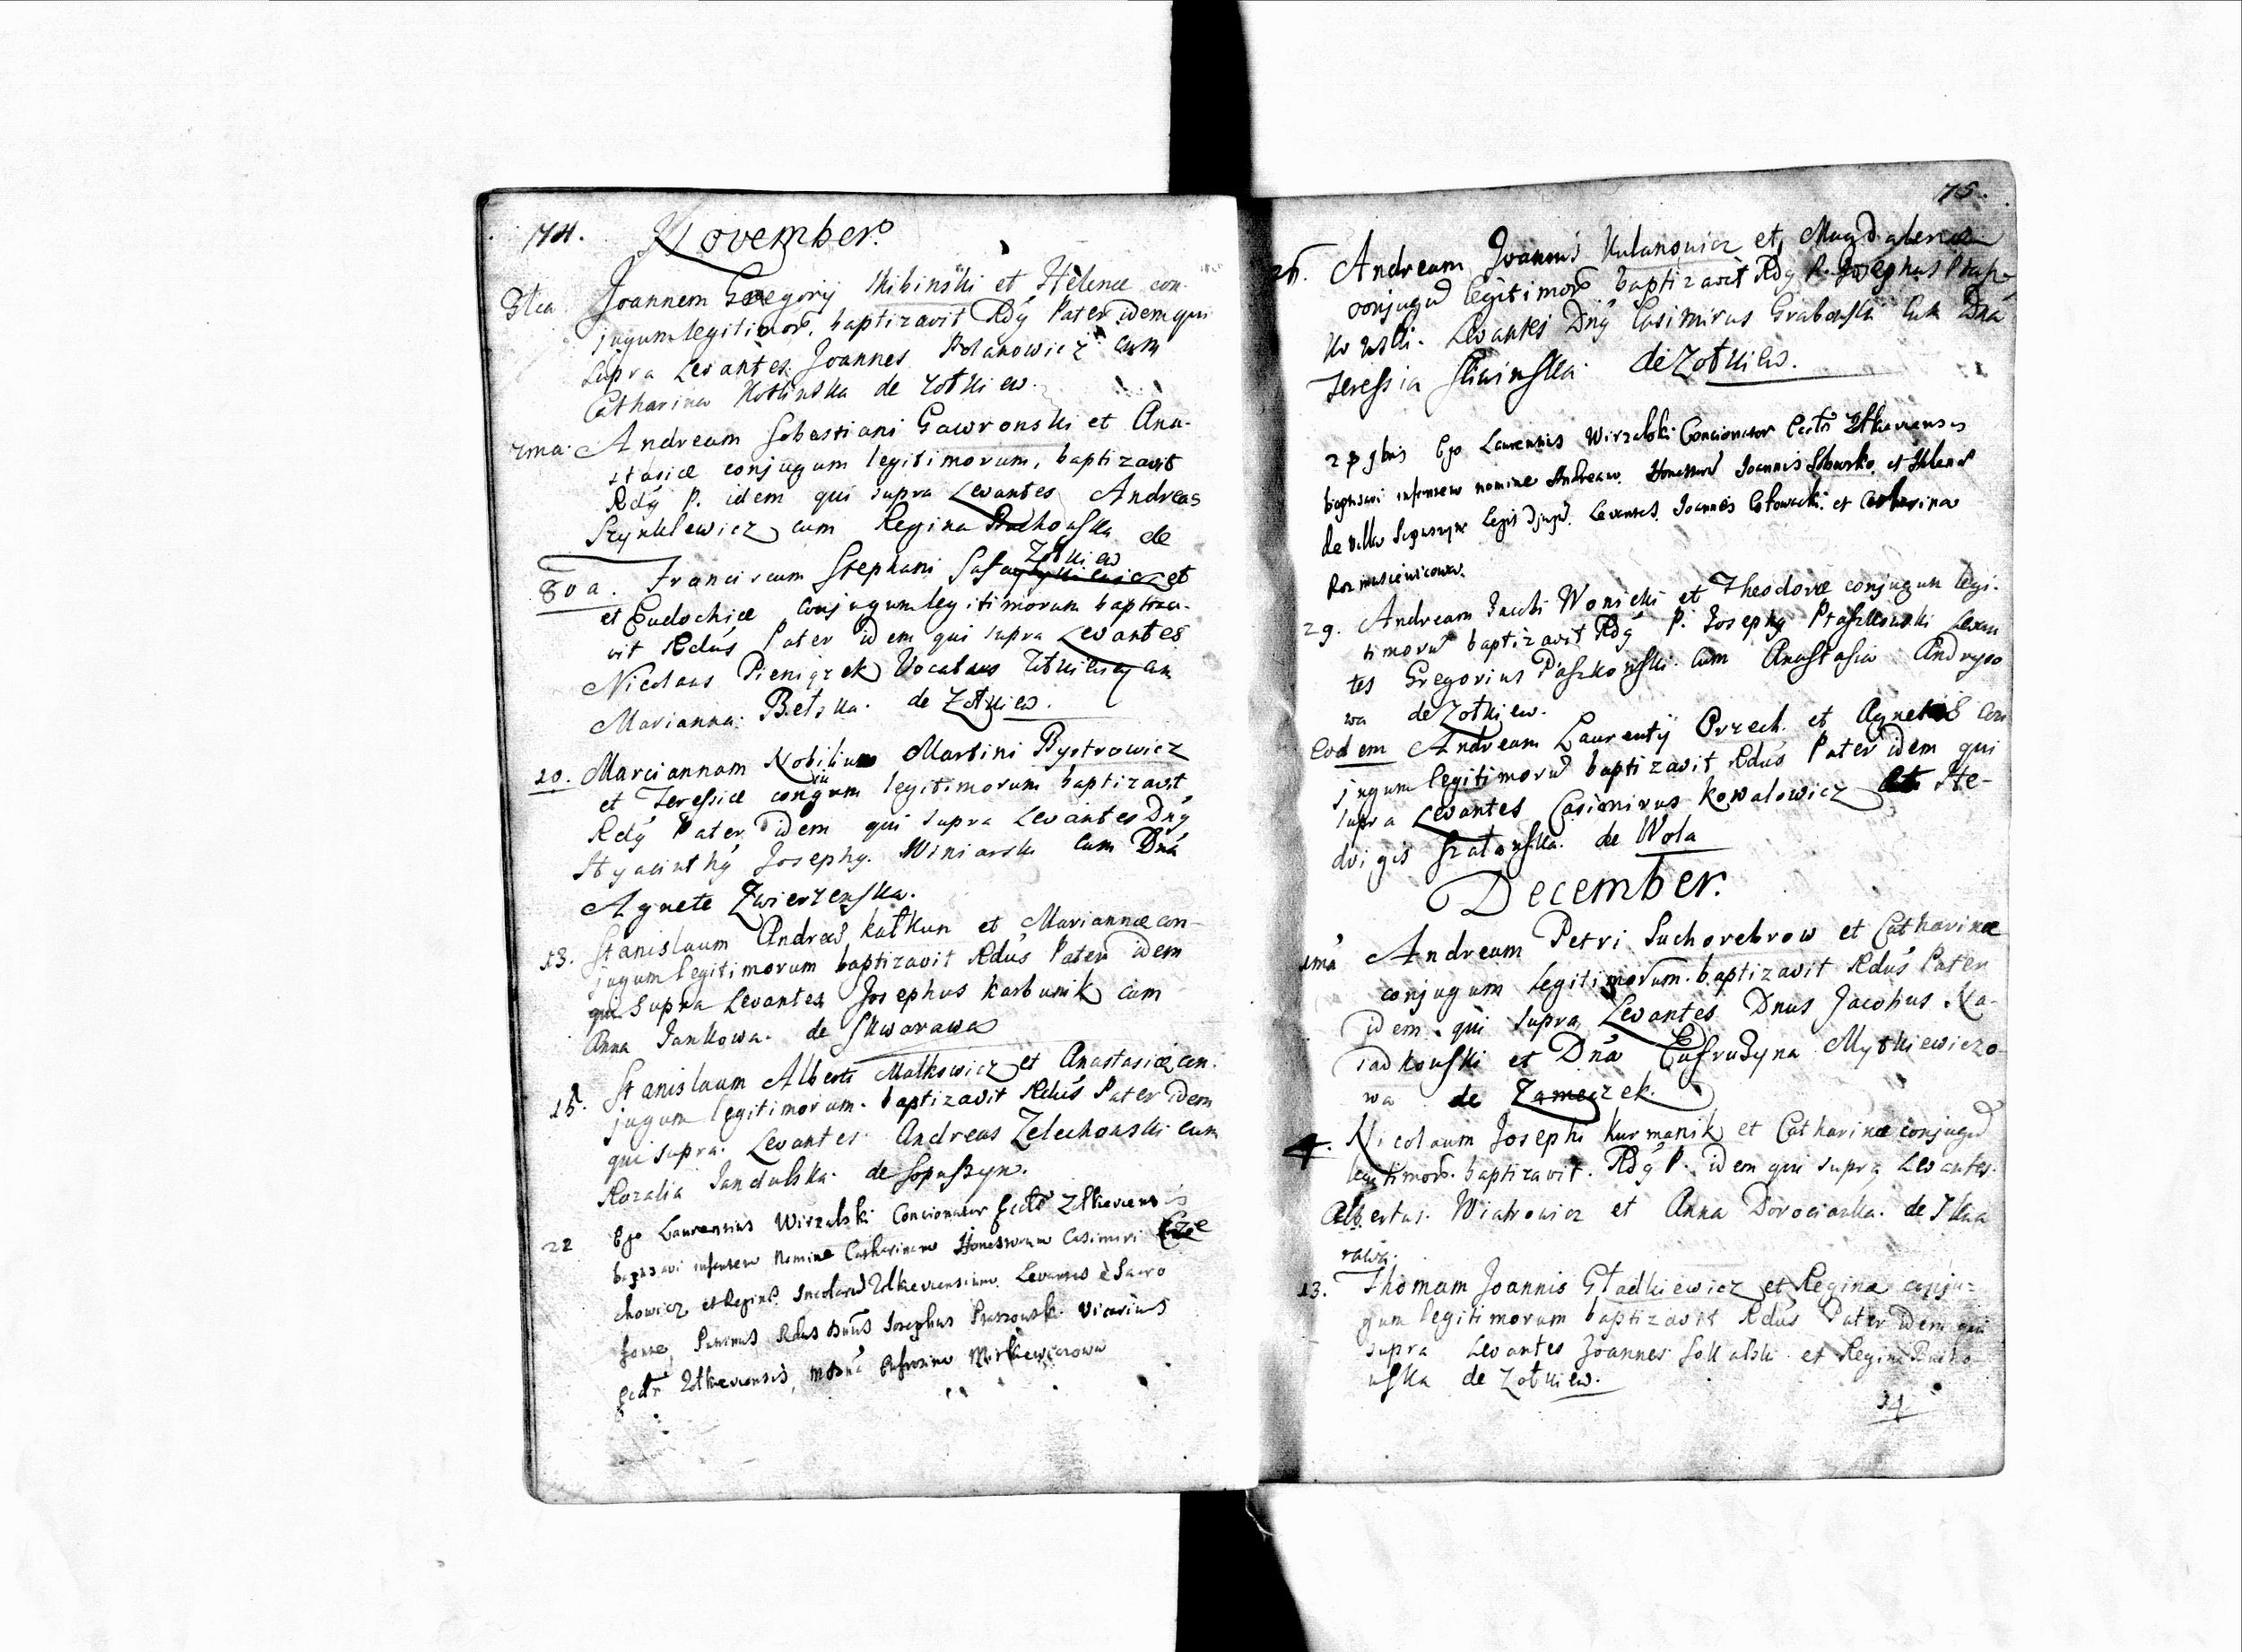 1741. November.
3tia Joannem Gregorij Skibinski et Helenæ con-
jugum legitimor. baptizavit Rdg Pater idem qui
supra Levantes. Joannes Bolanowicz cum
Catharina Kotlinska de Zołkiew.
7ma. Andream Sebastiani Gawronski et Ana-
stasiæ conjugum legitimorum, baptizavit
Rdg P. idem qui supra Levantes Andreas
Szynklewicz cum Regina de
Zołkiew
80a. Franciscum Stephani et
et Eudochiæ conjugum legitimorum baptiza-
vit Rdus Pater idem qui supra Levantes
Nicolaus Pieniązek Vocatus cum
Marianna Betska. de Zołkiew.
10. Mariannam Nobilium Martini Bystrowicz
et Teressiæ conjugum legitimorum baptizavit
Rdg Pater idem qui supra Levantes Dng
Hyacinthg Josephg. Winiarski cum Dna
Agnete Zwierzenska.
13. Stanislaum Andreæ Kałkun et Mariannæ con-
jugum legitimorum baptizavit Rdus Pater idem
qui supra Levantes Josephus Karbunik cum
Anna Jankowa. de Skwarawa
15. Stanislaum Alberti Małkowicz et Anastasiæ con-
jugum legitimorum. baptizavit Rdus Pater idem
qui supra. Levantes Andreas Zelechowski cum
Rozalia Jandulska. de Sopuszyn.
22 Ego Laurentius Wirzalski Concionator Eccl Zolkieviensis
baptisavi infantem Nomine Catharinam Honestorum Casimiri Cze
chowicz et Reginæ Incolarum Zolkieviensium. Levantes è Sacro
fonte, Patrinus Rdus Dnus Josephus Vicarius
Zolkieviensis,
75.
26. Andream Joannis Kulanowicz et Magdalenæ
conjugu legitimor baptizavit Rdg P. Josephus Ptasz-
kowski. Levantes Dng Casimirus Grabowski cum Dna
Teressia Sliwinska. de Zołkiew.
Ego Laurentius Wirzalski Concionator Zolkieviensis
baptisavi infantem nomine Andream Joannis et Helenæ
de villa Sopuszyn Levantes. Joannes Głowacki et Catherina
29. Andream Jacobi Wonicki et Theodoræ conjugum legi-
timoru baptizavit Rdg P. Josephg Ptaszkowski Levan
tes Gregorius Paszkowski cum Anastasia Andryso
wa de Zołkiew.
Eodem Andream Laurentij Orzech et Agnetis con
jugum legitimoru baptizavit Rdus Pater idem qui
supra Levantes Casimirus Kowalowicz et He-
dvigis Szatonska. de Wola
December.
1ma Andream Petri Suchorebrow et Catharinæ
conjugum legitimorum. baptizavit Rdus Pater
idem qui supra Levantes Dnus Jacobus Na-
radkouski et Dna Eufrudyna Mytkiewiczo-
wa de Zameczek.
4. Nicolaum Josephi Kurmanik et Catharinæ conjugu
legitimor. baptizavit. Rdg P. idem qui supra Levantes.
Albertus. Wiatrowicz et Anna Dorociaska. de Skwa
rawa.
13. Thomam Joannis Gładkiewicz et Reginæ conju-
gum legitimorum baptizavit Rdus Pater idem qui
supra Levantes Joannes Sokalski et Regina Bucho-
uska de Zołkiew.